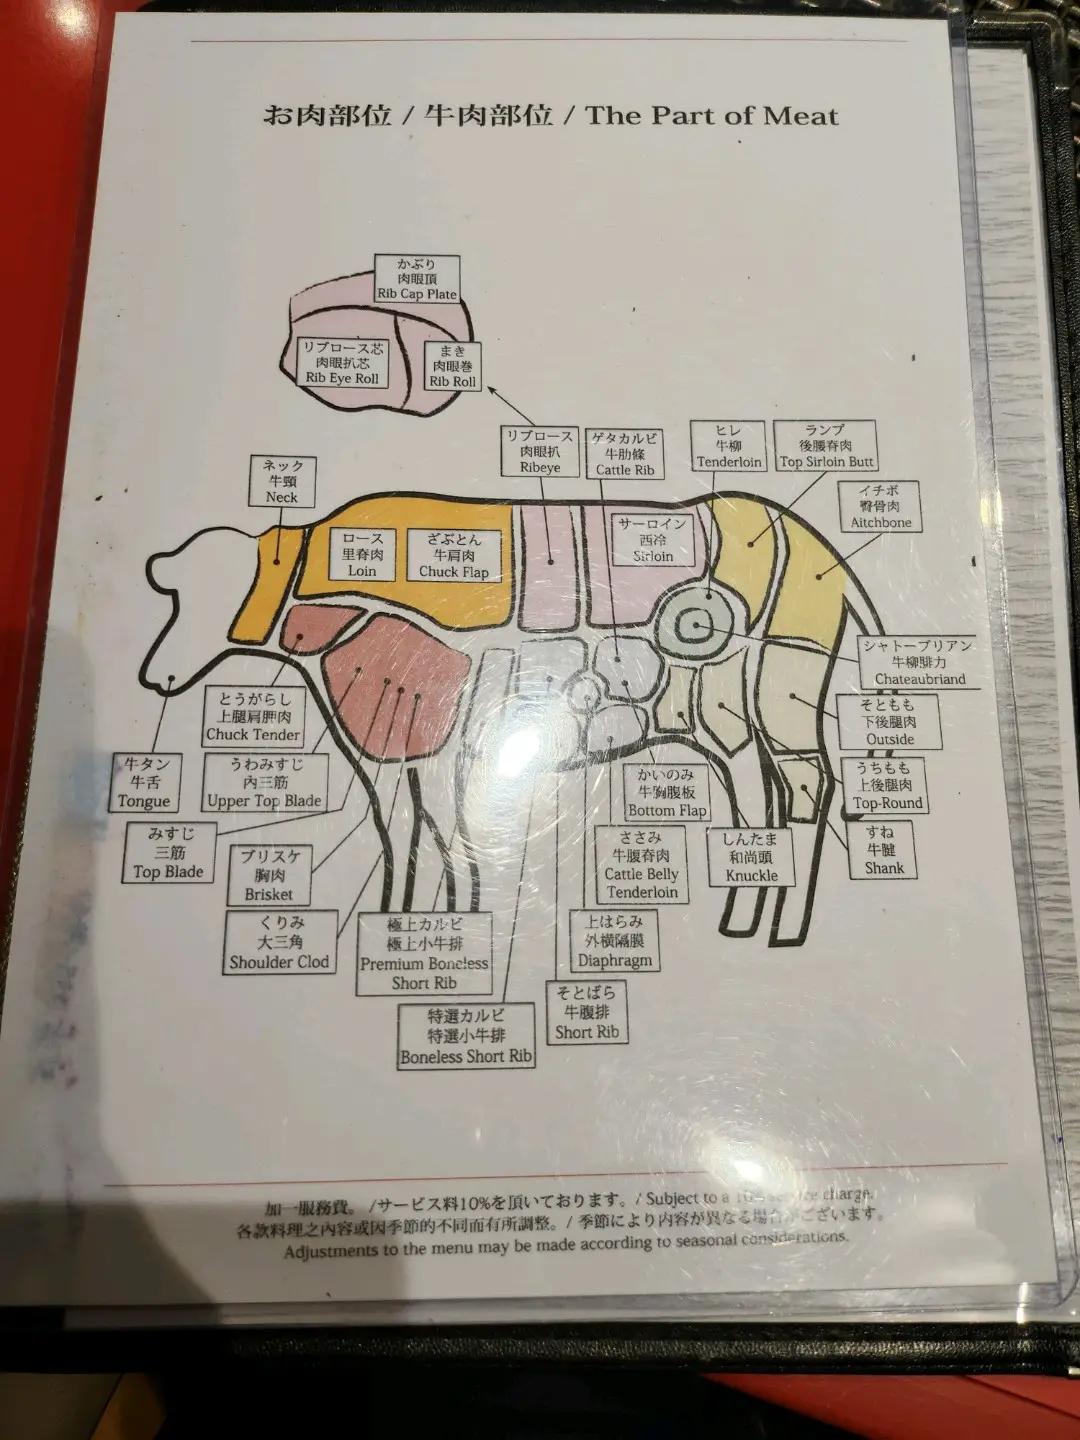 お肉部位 / 牛肉部位 / The Part of Meat
かぶり
肉眼頂
Rib Cap Plate
リブロース芯
肉眼扒芯
Rib Eye Roll
まき
肉眼巻
Rib Roll
リブロース
肉眼扒
Ribeye
ゲタカルビ
牛肋條
Cattle Rib
ヒレ
牛柳
Tenderloin
ランプ
後腰脊肉
Top Sirloin Butt
ネック
牛頸
Neck
イチボ
臀骨肉
Aitchbone
ロース
里脊肉
Loin
ざぶとん
牛肩肉
Chuck Flap
サーロイン
西冷
Sirloin
シャトーブリアン
牛柳腓力
Chateaubriand
とうがらし
上腿肩胛肉
Chuck Tender
そともも
下後腿肉
Outside
牛タン
牛舌
Tongue
うわみすじ
內三筋
Upper Top Blade
かいのみ
牛胸腹板
Bottom Flap
うちもも
上後腿肉
Top-Round
みすじ
三筋
Top Blade
ブリスケ
胸肉
Brisket
ささみ
牛腹脊肉
Cattle Belly
Tenderloin
しんたま
和尚頭
Knuckle
すね
牛腱
Shank
くりみ
大三角
Shoulder Clod
極上カルビ
極上小牛排
Premium Boneless
Short Rib
上はらみ
外橫隔膜
Diaphragm
特選カルビ
特選小牛排
Boneless Short Rib
そとばら
牛腹排
Short Rib
加一服務費。 /サービス料10%を頂いております。/ Subject to a 10% service charge.
各款料理之內容或因季節的不同而有所調整。/ 季節により内容が異なる場合がございます。
Adjustments to the menu may be made according to seasonal considerations.